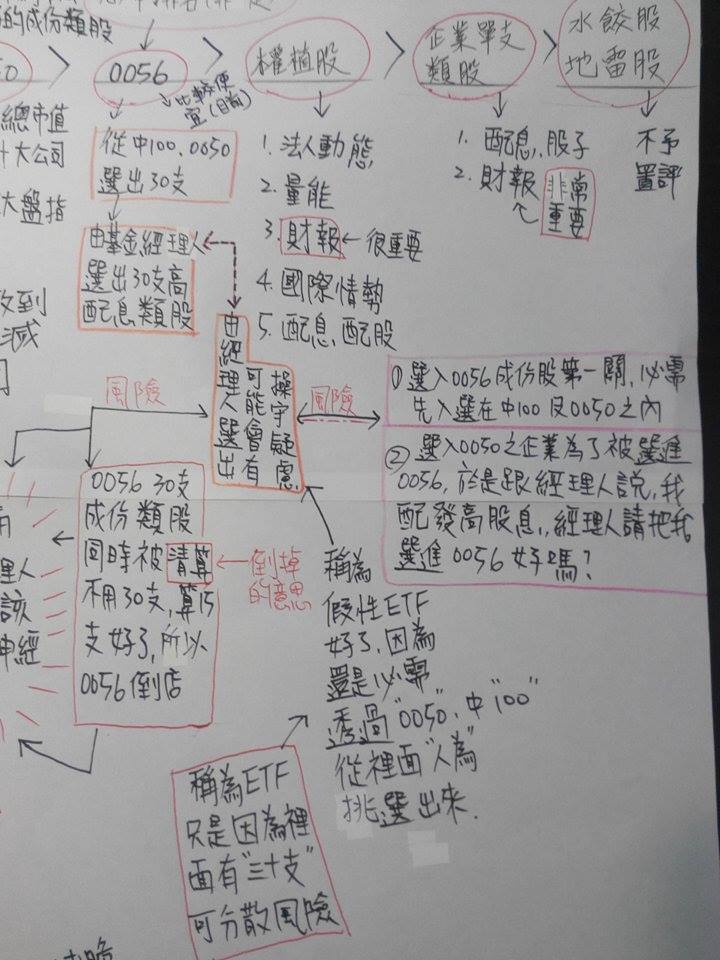 的成份類股
50 > 0056 > 權植股 > 企業單支
類股 > 水餃股
地雷股
比較便
宜(目前)
總市值
十大公司
大盤指
從中100、0050
選出30支
由基金經理人
選出30支高
配息類股
1. 法人動態
2. 量能
3. 財報 ← 很重要
4. 國際情勢
5. 配息、配股
1. 配息、股子
2. 財報
非常
重要
不予
置評
收到
減
司
風險
由經理人選出
可能會有
操守疑慮
風險
① 選入0056成份股第一關,必需
先入選在中100及0050之內
② 選入0050之企業為了被選進
0056,於是跟經理人說,我
配發高股息,經理人請把我
選進0056好嗎?
0056 30支
成份類股
同時被清算
不用30支,算15
支好了,所以
0056倒店
倒掉
的意思
理人
該
神經
稱為
假性ETF
好了,因為
還是必需
透過"0050、中"100"
從裡面"人為"
挑選出來.
稱為ETF
只是因為裡
面有"三十支"
可分散風險